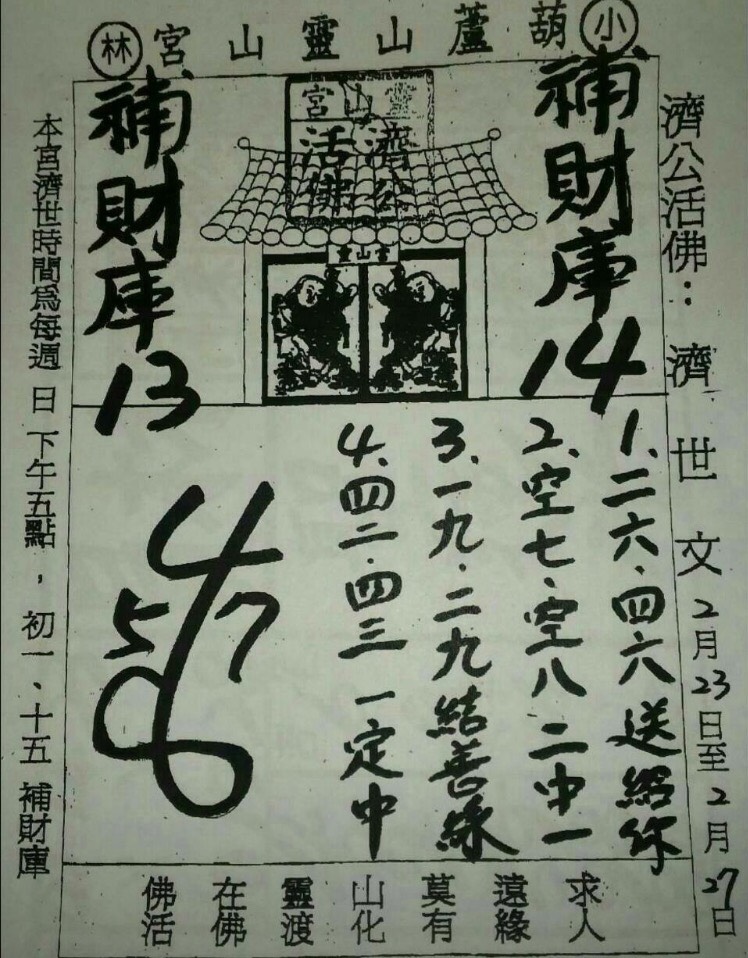 小 葫蘆山靈山宮 林
濟公活佛：濟世文 2月23日至2月27日
補財庫14
靈山宮
濟公
活佛
靈山宮
補財庫13
1、二六、四六送給你
2、空七、空八二中一
3、一九、二九結善緣
4、四二、四三一定中
4
5
7
求人
遠緣
莫有
山化
靈渡
在佛
佛活
本宮濟世時間為每週日下午五點，初一、十五補財庫